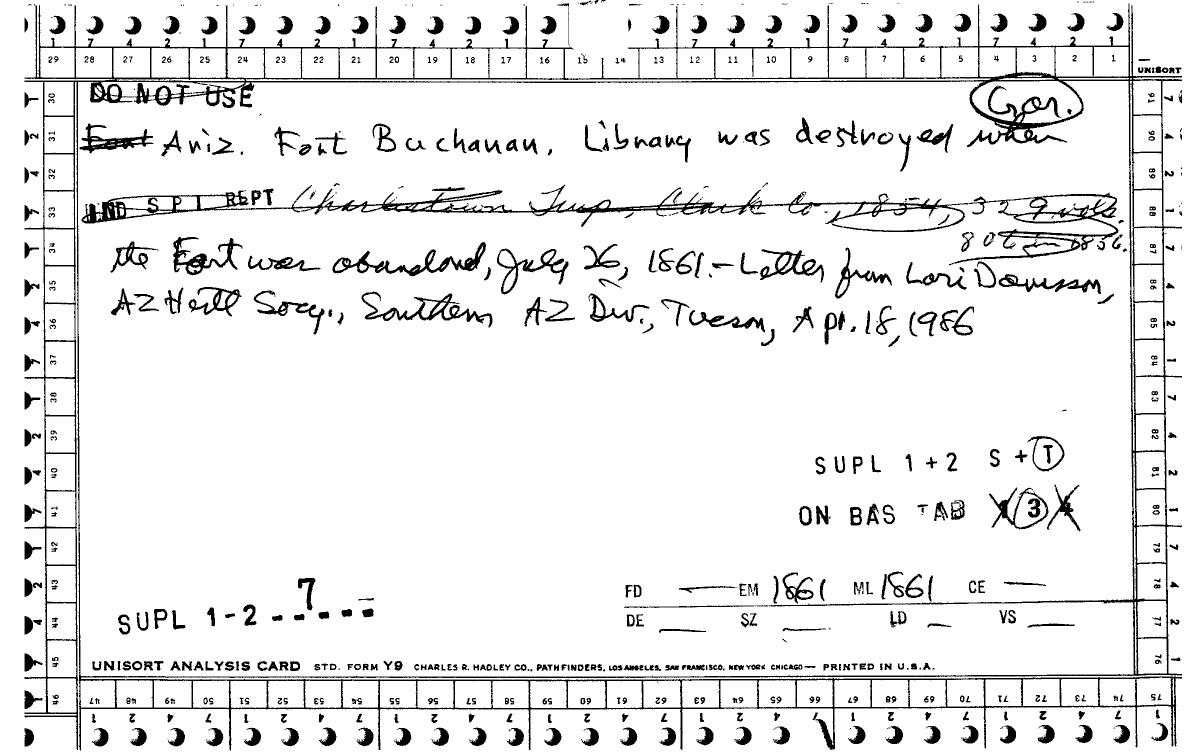 7 4 2 1 7 4 2 1 7 4 2 1 7 1 7 4 2 1 7 4 2 1 7 4 2 1
29 28 27 26 25 24 23 22 21 20 19 18 17 16 15 14 13 12 11 10 9 8 7 6 5 4 3 2 1
UNISORT
DO NOT USE
Gov.
Font Ariz. Fort Buchanan. Library was destroyed when
IND SPI REPT Charlestown Twp., Clark Co., 1854, 329 vols.
806 in 1856.
the Fort was abandoned, July 26, 1861. - Letter from Lori Davisson,
AZ Heritl Socy., Southern AZ Div., Tucson, Apr. 18, 1986
SUPL 1+2 S+T
ON BAS TAB 1 3 4
7
SUPL 1-2 - - - - -
FD — EM 1861 ML 1861 CE —
DE __ SZ __ LD __ VS __
UNISORT ANALYSIS CARD STD. FORM Y9 CHARLES R. HADLEY CO., PATHFINDERS, LOS ANGELES, SAN FRANCISCO, NEW YORK CHICAGO — PRINTED IN U.S.A.
46 47 48 49 50 51 52 53 54 55 56 57 58 59 60 61 62 63 64 65 66 67 68 69 70 71 72 73 74 75
1 2 4 7 1 2 4 7 1 2 4 7 1 2 4 7 1 2 4 7 1 2 4 7 1 2 4 7
30 31 32 33 34 35 36 37 38 39 40 41 42 43 44 45
91 90 89 88 87 86 85 84 83 82 81 80 79 78 77 76